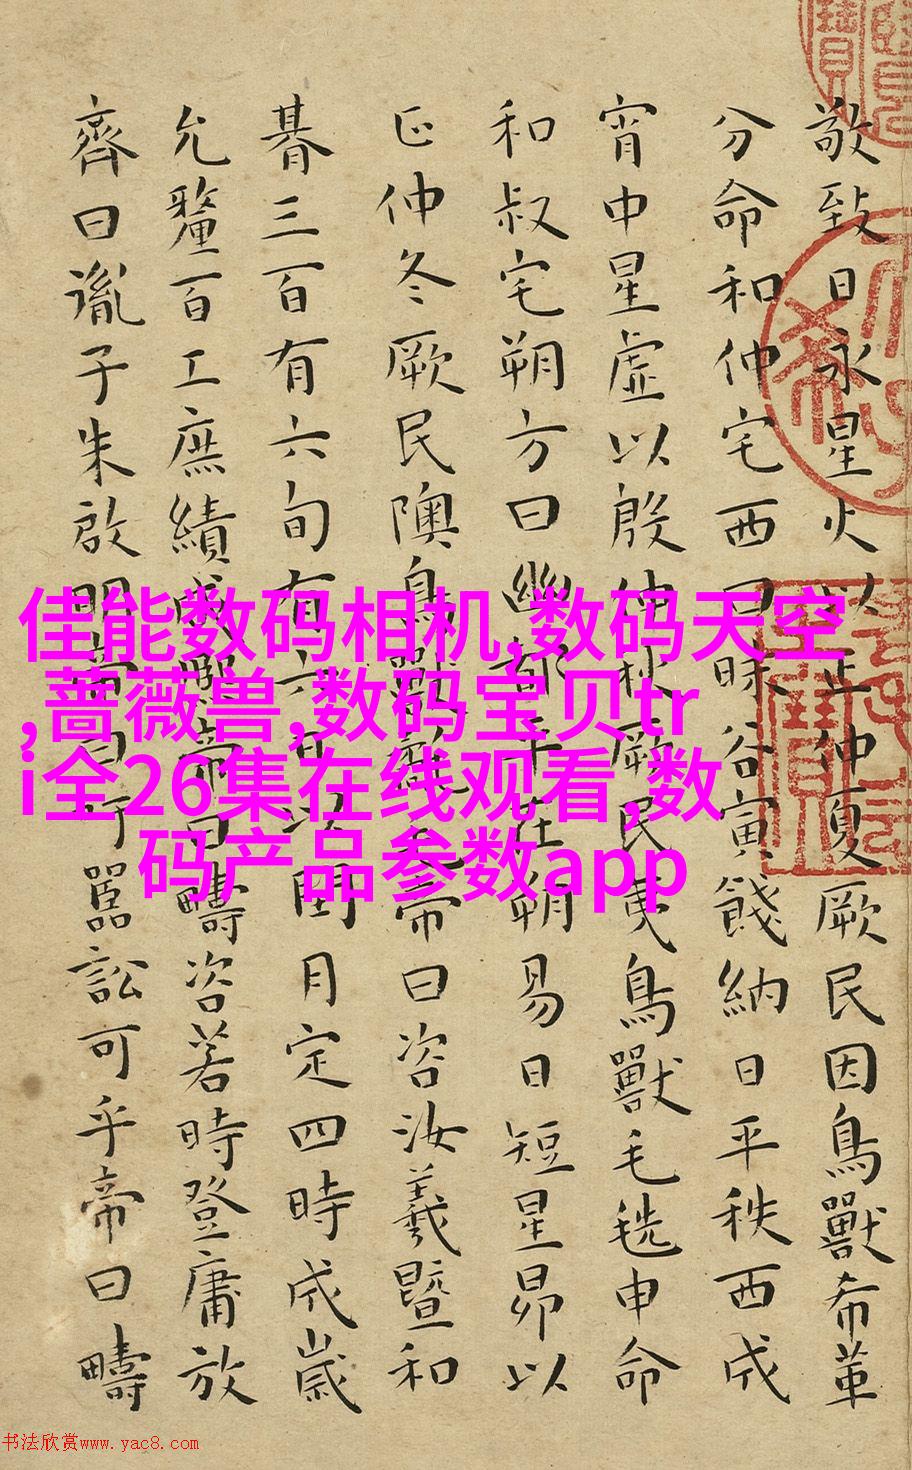 敬致日永星火以正仲夏厥民因鳥獸希革
分命和仲宅西曰昧谷寅餞納日平秩西成
宵中星虛以殷仲秋厥民夷鳥獸毛毨申命
和叔宅朔方曰幽都平在朔易日短星昴以
正仲冬厥民隩鳥獸氄毛帝曰咨汝羲暨和
朞三百有六旬有六日以閏月定四時成歲
允釐百工庶績咸熙帝曰疇咨若時登庸放
齊曰胤子朱啟明帝曰吁嚚訟可乎帝曰疇
佳能数码相机,数码天空
,蔷薇兽,数码宝贝tr
i全26集在线观看,数
码产品参数app
书法欣赏www.yac8.com